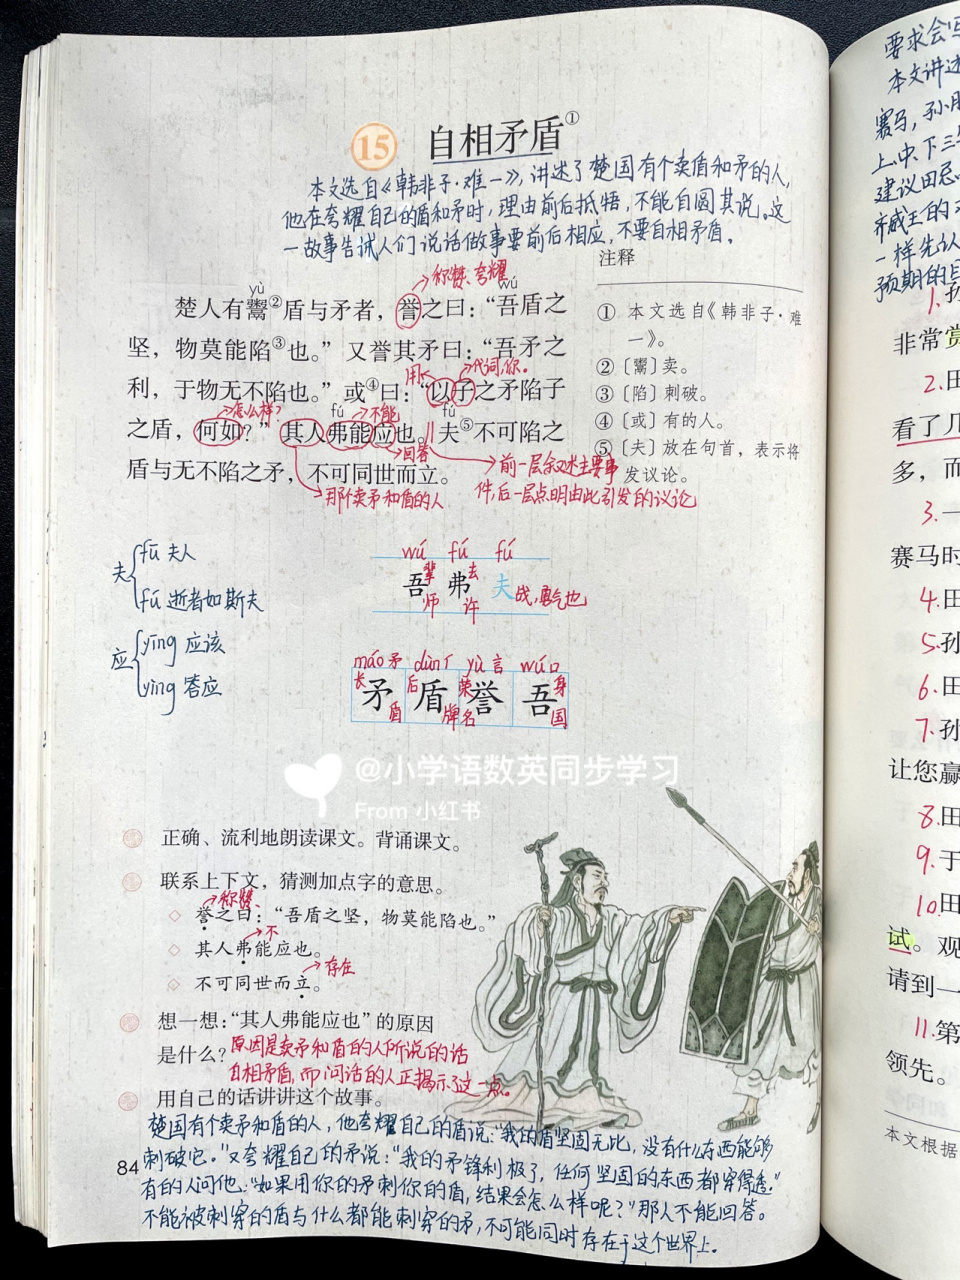 15 自相矛盾①
本文选自《韩非子·难一》,讲述了楚国有个卖盾和矛的人,
他在夸耀自己的盾和矛时,理由前后抵牾,不能自圆其说。这
一故事告诫人们说话做事要前后相应,不要自相矛盾。
注释
①本文选自《韩非子·难
一》。
②〔鬻〕卖。
③〔陷〕刺破。
④〔或〕有的人。
⑤〔夫〕放在句首,表示将
发议论。
称赞、夸耀
yù wú
楚人有鬻②盾与矛者,誉之曰:“吾盾之
坚,物莫能陷③也。”又誉其矛曰:“吾矛之
用 代词,你。
利,于物无不陷也。”或④曰:“以子之矛陷子
怎么样? fú 不能 fú
之盾,何如?”其人弗能应也。‖夫⑤不可陷之
回答
盾与无不陷之矛,不可同世而立。
那个卖矛和盾的人
前一层叙述主要事
件,后一层点明由此引发的议论
夫
fū 夫人
fú 逝者如斯夫
应
yīng 应该
yìng 答应
wú fú fú
吾 弗 夫
辈 去 战,勇气也
师 许
máo 矛 dùn 厂 yù 言 wú 口
矛 盾 誉 吾
长 后 荣 身
盾 牌 名 国
@小学语数英同步学习
From 小红书
正确、流利地朗读课文。背诵课文。
联系上下文,猜测加点字的意思。
称赞、
◇ 誉之曰:“吾盾之坚,物莫能陷也。”
不
◇ 其人弗能应也。
存在
◇ 不可同世而立。
想一想:“其人弗能应也”的原因
是什么?原因是卖矛和盾的人所说的话
自相矛盾,而问话的人正揭示了这一点。
用自己的话讲讲这个故事。
楚国有个卖矛和盾的人,他夸耀自己的盾说:“我的盾坚固无比,没有什么东西能够
刺破它。”又夸耀自己的矛说:“我的矛锋利极了,任何坚固的东西都穿得透。”
有的人问他:“如果用你的矛刺你的盾,结果会怎么样呢?”那人不能回答。
不能被刺穿的盾与什么都能刺穿的矛,不可能同时存在于这个世界上。
84
要求会写
本文讲述
赛马,孙
上、中、下三
建议田忌
齐威王的
一样先认
预期的
1.孙
非常赏
2.田
看了几
多,而
3.一
赛马时
4.田
5.孙
6.田
7.孙
让您赢
8.田
9.于
10.田
试。观
请到一
11.第
领先。
本文根据